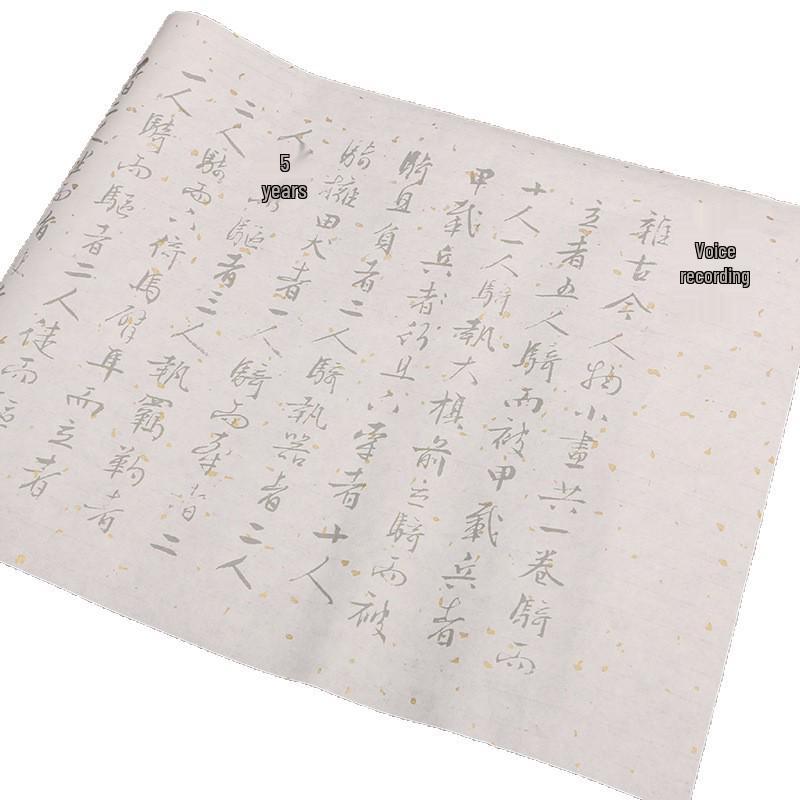 Voice
recording
雜古今人物小畫共一卷騎而
立者五人騎而被甲載兵者
十人一人騎執大旗前立騎而被
甲載兵者行且下牽者十人
騎且負者二人騎執器者二人
騎擁田犬者一人騎而牽者二
人 驅者三人執羈靮者
5
years
二人騎而下倚馬臂隼而立者
一人騎而驅者二人徒而